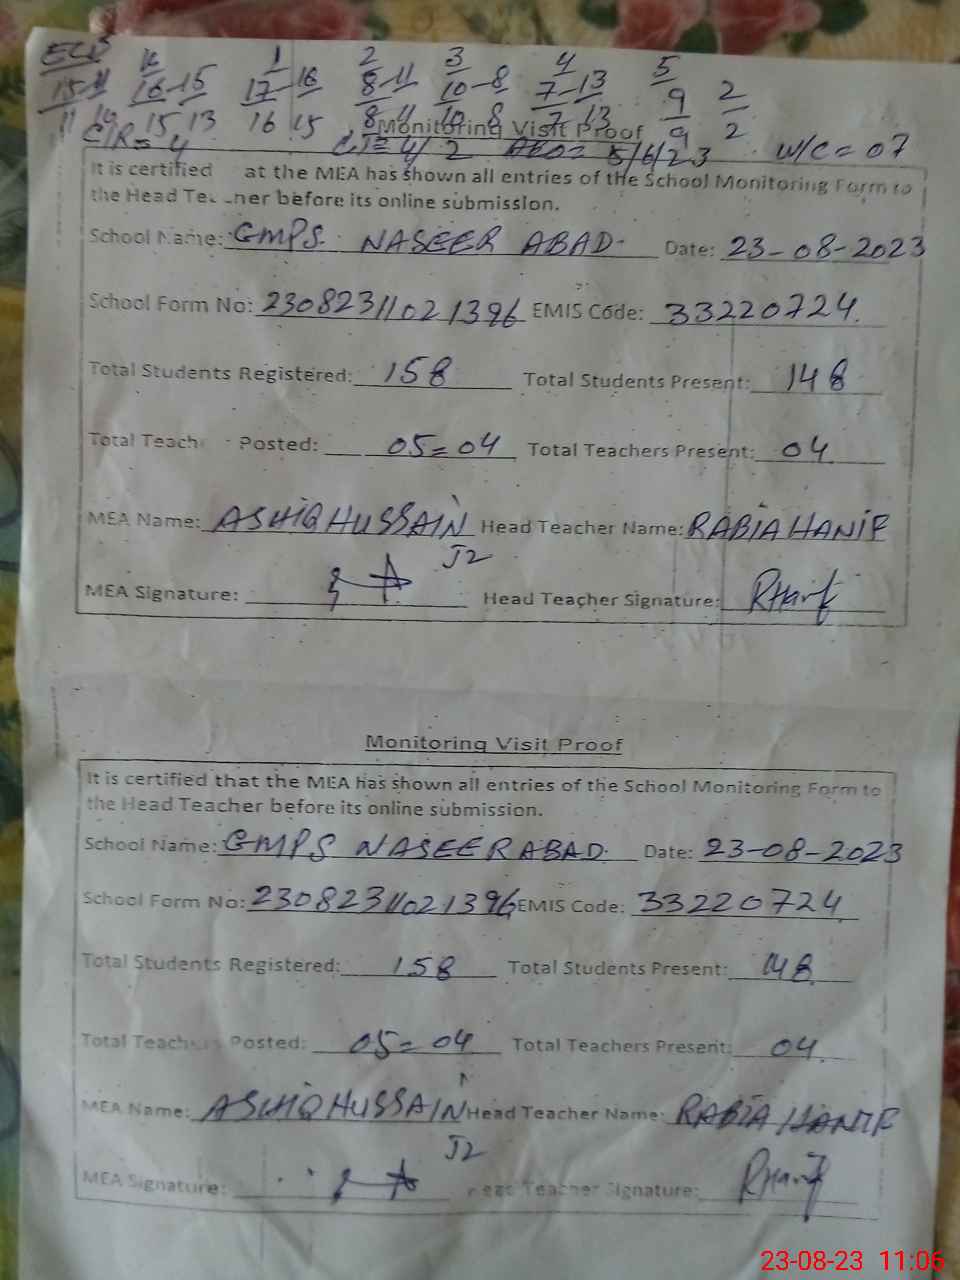 ECE K 1 2 3 4 5
15-11 16-15 17-16 8-11 10-8 7-13 9 2
11 10 15, 13 16 15 8 11 10 8 7 13 9 2
Monitoring Visit Proof
C/R = 4 4/2 AEO = 5/6/23 W/C = 07
It is certified at the MEA has shown all entries of the School Monitoring Form to
the Head Te ner before its online submission.
School Name: GMPS NASEER ABAD Date: 23-08-2023
School Form No: 23082311021396 EMIS Code: 33220724
Total Students Registered: 158 Total Students Present: 148
Total Teach Posted: 05=04 Total Teachers Present: 04
MEA Name: ASHIQ HUSSAIN Head Teacher Name: RABIA HANIF
J2
MEA Signature: Head Teacher Signature: RHanif
Monitoring Visit Proof
It is certified that the MEA has shown all entries of the School Monitoring Form to
the Head Teacher before its online submission.
School Name: GMPS NASEER ABAD Date: 23-08-2023
School Form No: 23082311021396 EMIS Code: 33220724
Total Students Registered: 158 Total Students Present: 148
Total Teach Posted: 05=04 Total Teachers Present: 04
MEA Name: ASHIQ HUSSAIN Head Teacher Name: RABIA HANIF
J2
MEA Signature: Head Teacher Signature: RHanif
23-08-23 11:06